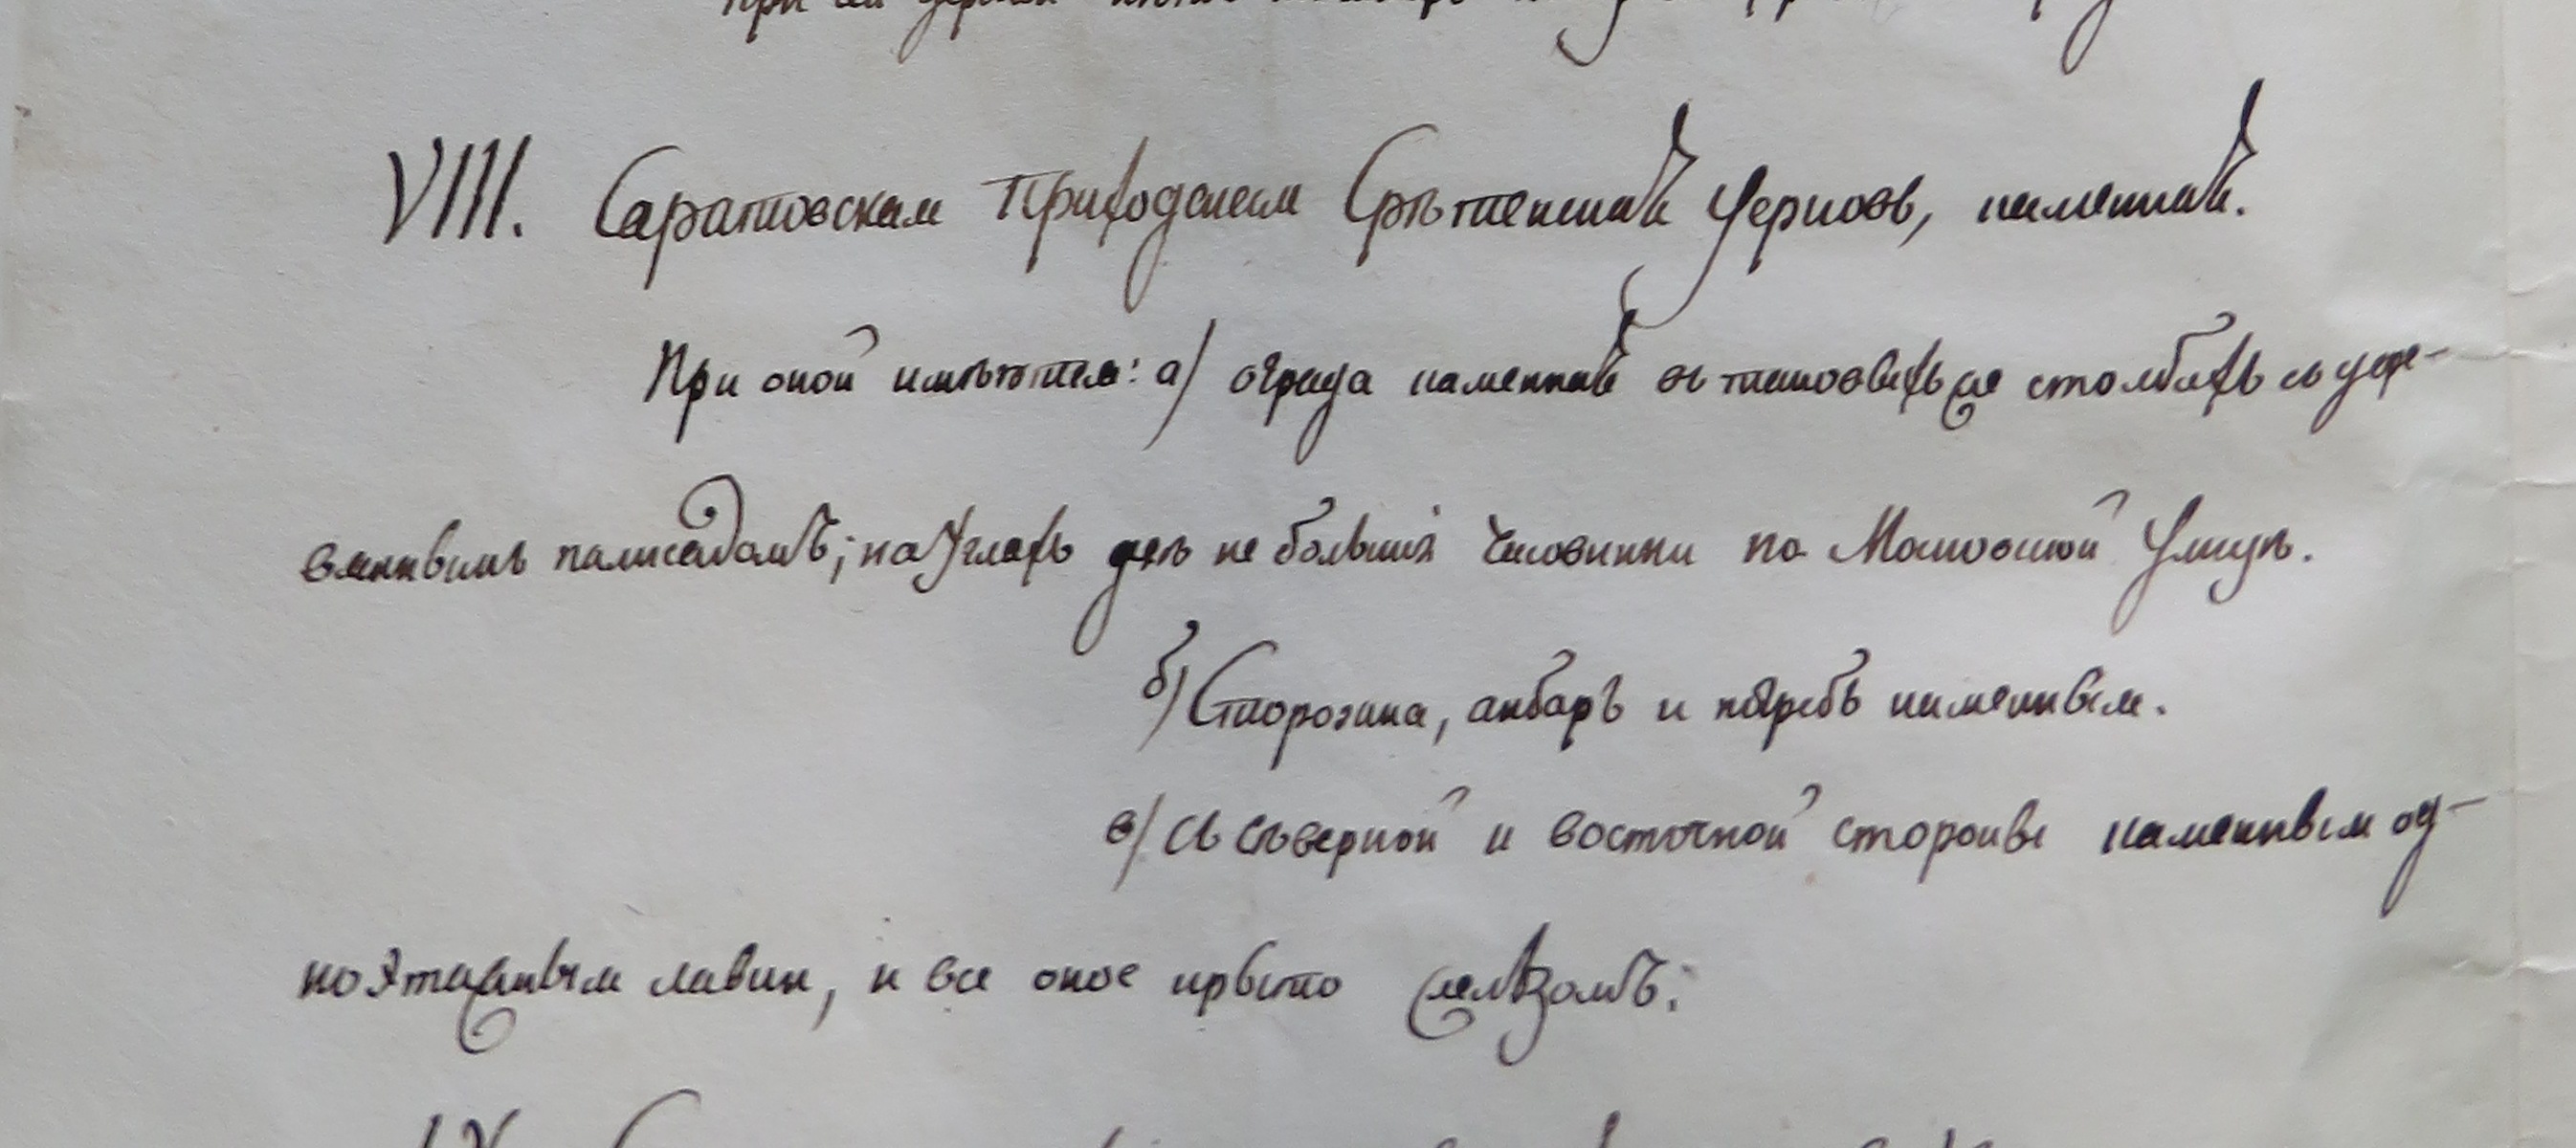 VIII. Саратовская Приходская Срѣтенская Церковь, каменная.
При оной имѣются: а) ограда каменная въ таковыхъ же столбахъ съ дере-
вяннымъ палисадомъ; на углахъ двѣ не большія часовинки по Московской Улицѣ.
б) Сторожка, анбаръ и погребъ каменныя.
в) Съ сѣверной и восточной стороны каменныя од-
ноэтажныя лавки, и все оное крыто желѣзомъ.